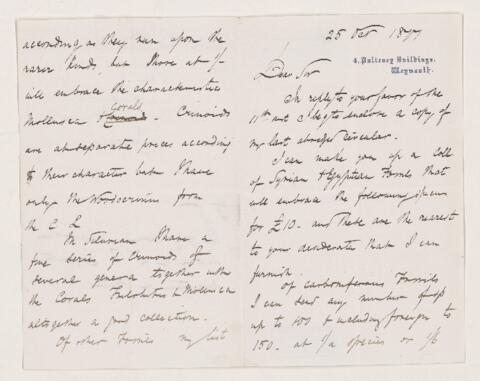 25 Oct 1877
4, Pulteney Buildings,
Weymouth.
Dear Sir
In reply to your favor of the
11th inst I beg to enclose a copy of
my last abridged circular.
I can make you up a coll
of Syrian & Egyptian Fossils that
will embrace the following
for £10. and these are the nearest
to your desiderata that I can
furnish.
Of carboniferous Fossils
I can send any number of sp
up to 100 & including foreign to
150. at 1/a species or 1/6
according as they run upon the
rarer kinds, but those at 1/-
will embrace the characteristic
Mollusca & Corals. Crinoids
are at separate prices according
to their character but I have
only the Woodocrinus from
the C L
In Silurian I have a
fine series of Crinoids of
several genera together with
the Corals Trilobites & Mollusca
altogether a good collection.
Of other Fossils my list